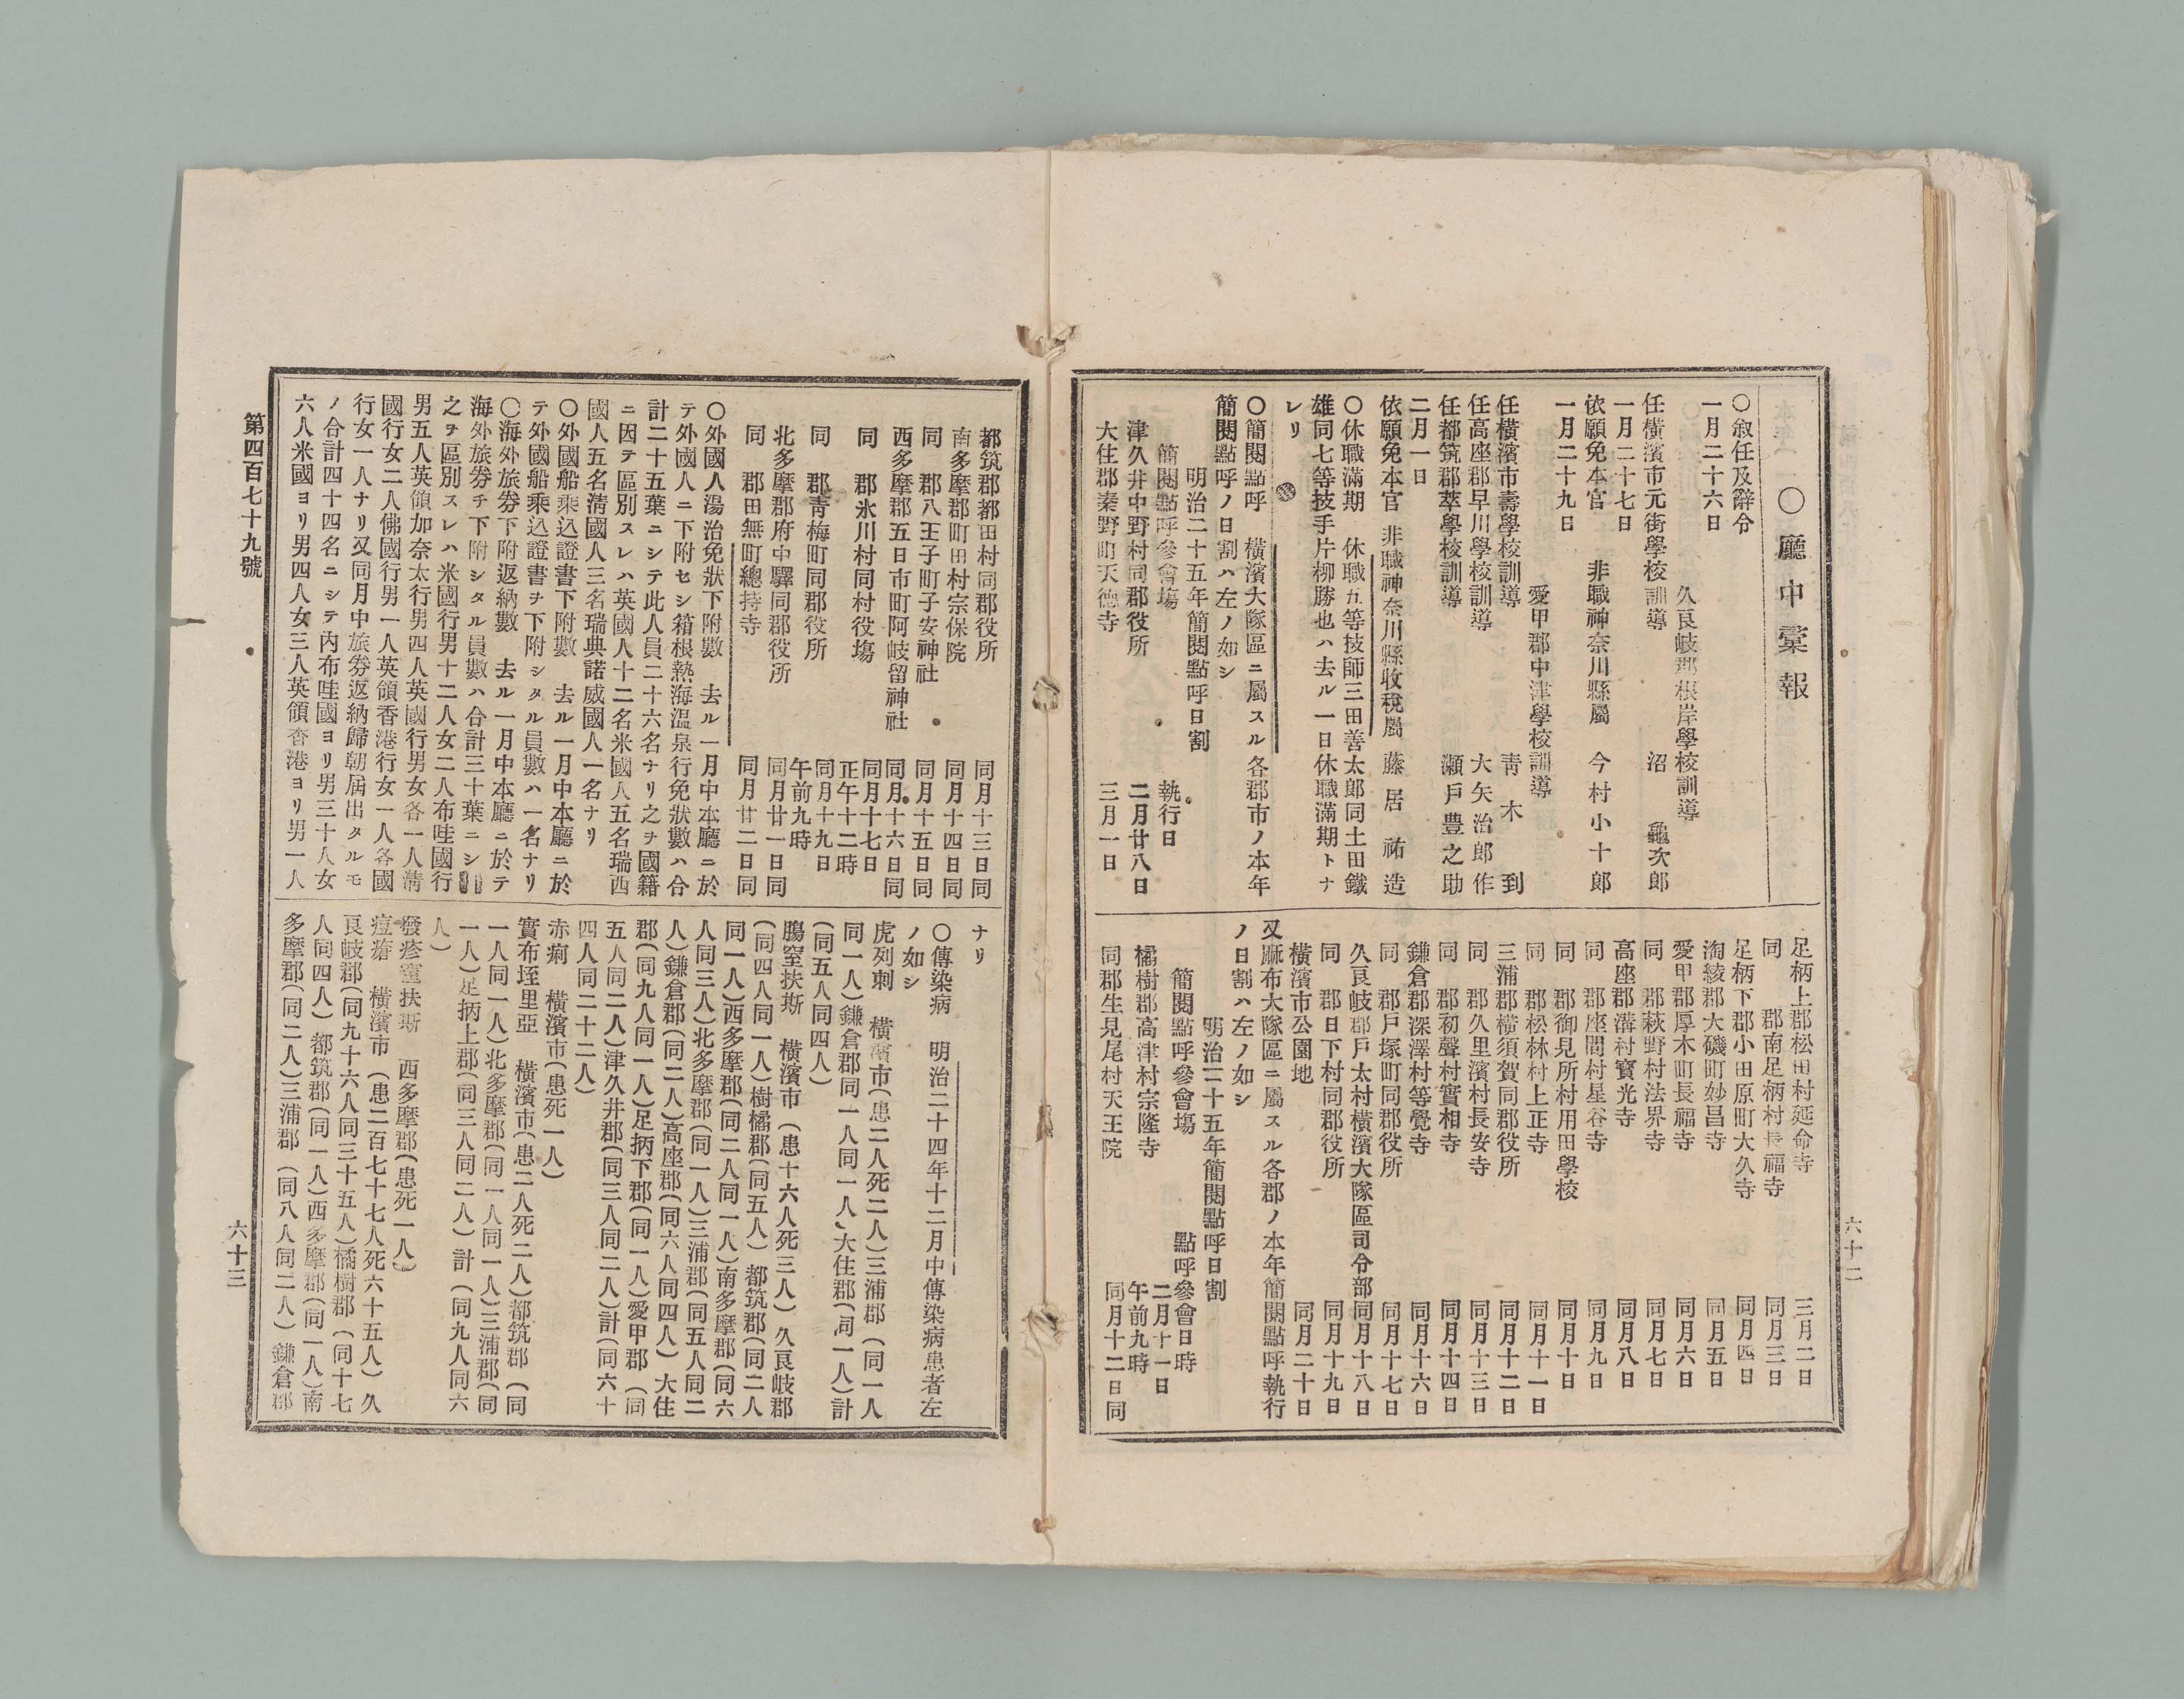 六十二
〇廳中彙報
〇敍任及辭令
一月二十六日
久良岐郡根岸學校訓導
任橫濱市元街學校訓導 沼 龜次郎
一月二十七日
非職神奈川縣屬
依願免本官 今村小十郎
一月二十九日
愛甲郡中津學校訓導
任橫濱市壽學校訓導 靑木到
任高座郡早川學校訓導 大矢治郎作
任都筑郡萃學校訓導 瀨戶豊之助
二月一日
依願免本官 非職神奈川縣收稅屬 藤居祐造
〇休職滿期 休職五等技師三田善太郎同土田鐵
雄同七等技手片柳勝也ハ去ル一日休職滿期トナ
レリ
〇簡閱點呼 橫濱大隊區ニ屬スル各郡市ノ本年
簡閱點呼ノ日割ハ左ノ如シ
明治二十五年簡閱點呼日割
簡閱點呼參會塲 執行日
津久井中野村同郡役所 二月廿八日
大住郡秦野町天德寺 三月一日
足柄上郡松田村延命寺 三月二日
同 郡南足柄村長福寺 同月三日
足柄下郡小田原町大久寺 同月四日
淘綾郡大磯町妙昌寺 同月五日
愛甲郡厚木町長福寺 同月六日
同 郡萩野村法界寺 同月七日
高座郡溝村寶光寺 同月八日
同 郡座間村星谷寺 同月九日
同 郡御見所村用田學校 同月十日
同 郡松林村上正寺 同月十一日
三浦郡橫須賀同郡役所 同月十二日
同 郡久里濱村長安寺 同月十三日
同 郡初聲村實相寺 同月十四日
鎌倉郡深澤村等覺寺 同月十六日
同 郡戶塚町同郡役所 同月十七日
久良岐郡戶太村橫濱大隊區司令部 同月十八日
同 郡日下村同郡役所 同月十九日
橫濱市公園地 同月二十日
又麻布大隊區ニ屬スル各郡ノ本年簡閱點呼執行
ノ日割ハ左ノ如シ
明治二十五年簡閱點呼日割
簡閱點呼參會塲 點呼參會日時
橘樹郡高津村宗隆寺 二月十一日午前九時
同郡生見尾村天王院 同月十二日同
都筑郡都田村同郡役所 同月十三日同
南多摩郡町田村宗保院 同月十四日同
同 郡八王子町子安神社 同月十五日同
西多摩郡五日市町阿岐留神社 同月十六日同
同 郡氷川村同村役塲 同月十七日正午十二時
同 郡靑梅町同郡役所 同月十九日午前九時
北多摩郡府中驛同郡役所 同月廿一日同
同 郡田無町總持寺 同月廿二日同
〇外國人湯治免狀下附數 去ル一月中本廳ニ於
テ外國人ニ下附セシ箱根熱海溫泉行免狀數ハ合
計二十五葉ニシテ此人員二十六名ナリ之ヲ國籍
ニ因テ區別スレハ英國人十二名米國人五名瑞西
國人五名淸國人三名瑞典諾威國人一名ナリ
〇外國船乘込證書下附數 去ル一月中本廳ニ於
テ外國船乘込證書ヲ下附シタル員數ハ一名ナリ
〇海外旅劵下附返納數 去ル一月中本廳ニ於テ
海外旅劵ヲ下附シタル員數ハ合計三十葉ニシ
之ヲ區別スレハ米國行男十二人女二人布哇國行
男五人英領加奈太行男四人英國行男女各一人淸
國行女二人佛國行男一人英領香港行女一人各國
行女一人ナリ又同月中旅劵返納歸朝屆出タルモ
ノ合計四十四名ニシテ內布哇國ヨリ男三十人女
六人米國ヨリ男四人女三人英領香港ヨリ男一人
ナリ
〇傳染病 明治二十四年十二月中傳染病患者左
ノ如シ
虎列刺 橫濱市(患二人死二人)三浦郡(同一人
同一人)鎌倉郡同一人同一人、大住郡(同一人)計
(同五人同四人)
膓窒扶斯 橫濱市(患十六人死三人)久良岐郡
(同四人同一人)樹橘郡(同五人)都筑郡(同二人
同一人)西多摩郡(同二人同一人)南多摩郡(同六
人同三人)北多摩郡(同一人)三浦郡(同五人同二
人)鎌倉郡(同二人)高座郡(同六人同四人)大住
郡(同九人同一人)足柄下郡(同一人)愛甲郡(同
五人同二人)津久井郡(同三人同二人)計(同六十
四人同二十二人)
赤痢 橫濱市(患死一人)
實布垤里亞 橫濱市(患二人死二人)都筑郡(同
一人同一人)北多摩郡(同一人同一人)三浦郡(同
一人)足柄上郡(同三人同二人)計(同九人同六
人)
發疹窒扶斯 西多摩郡(患死一人)
痘瘡 橫濱市(患二百七十七人死六十五人)久
良岐郡(同九十六人同三十五人)橘樹郡(同十七
人同四人)都筑郡(同一人)西多摩郡(同一人)南
多摩郡(同二人)三浦郡(同八人同二人)鎌倉郡
第四百七十九號
六十三